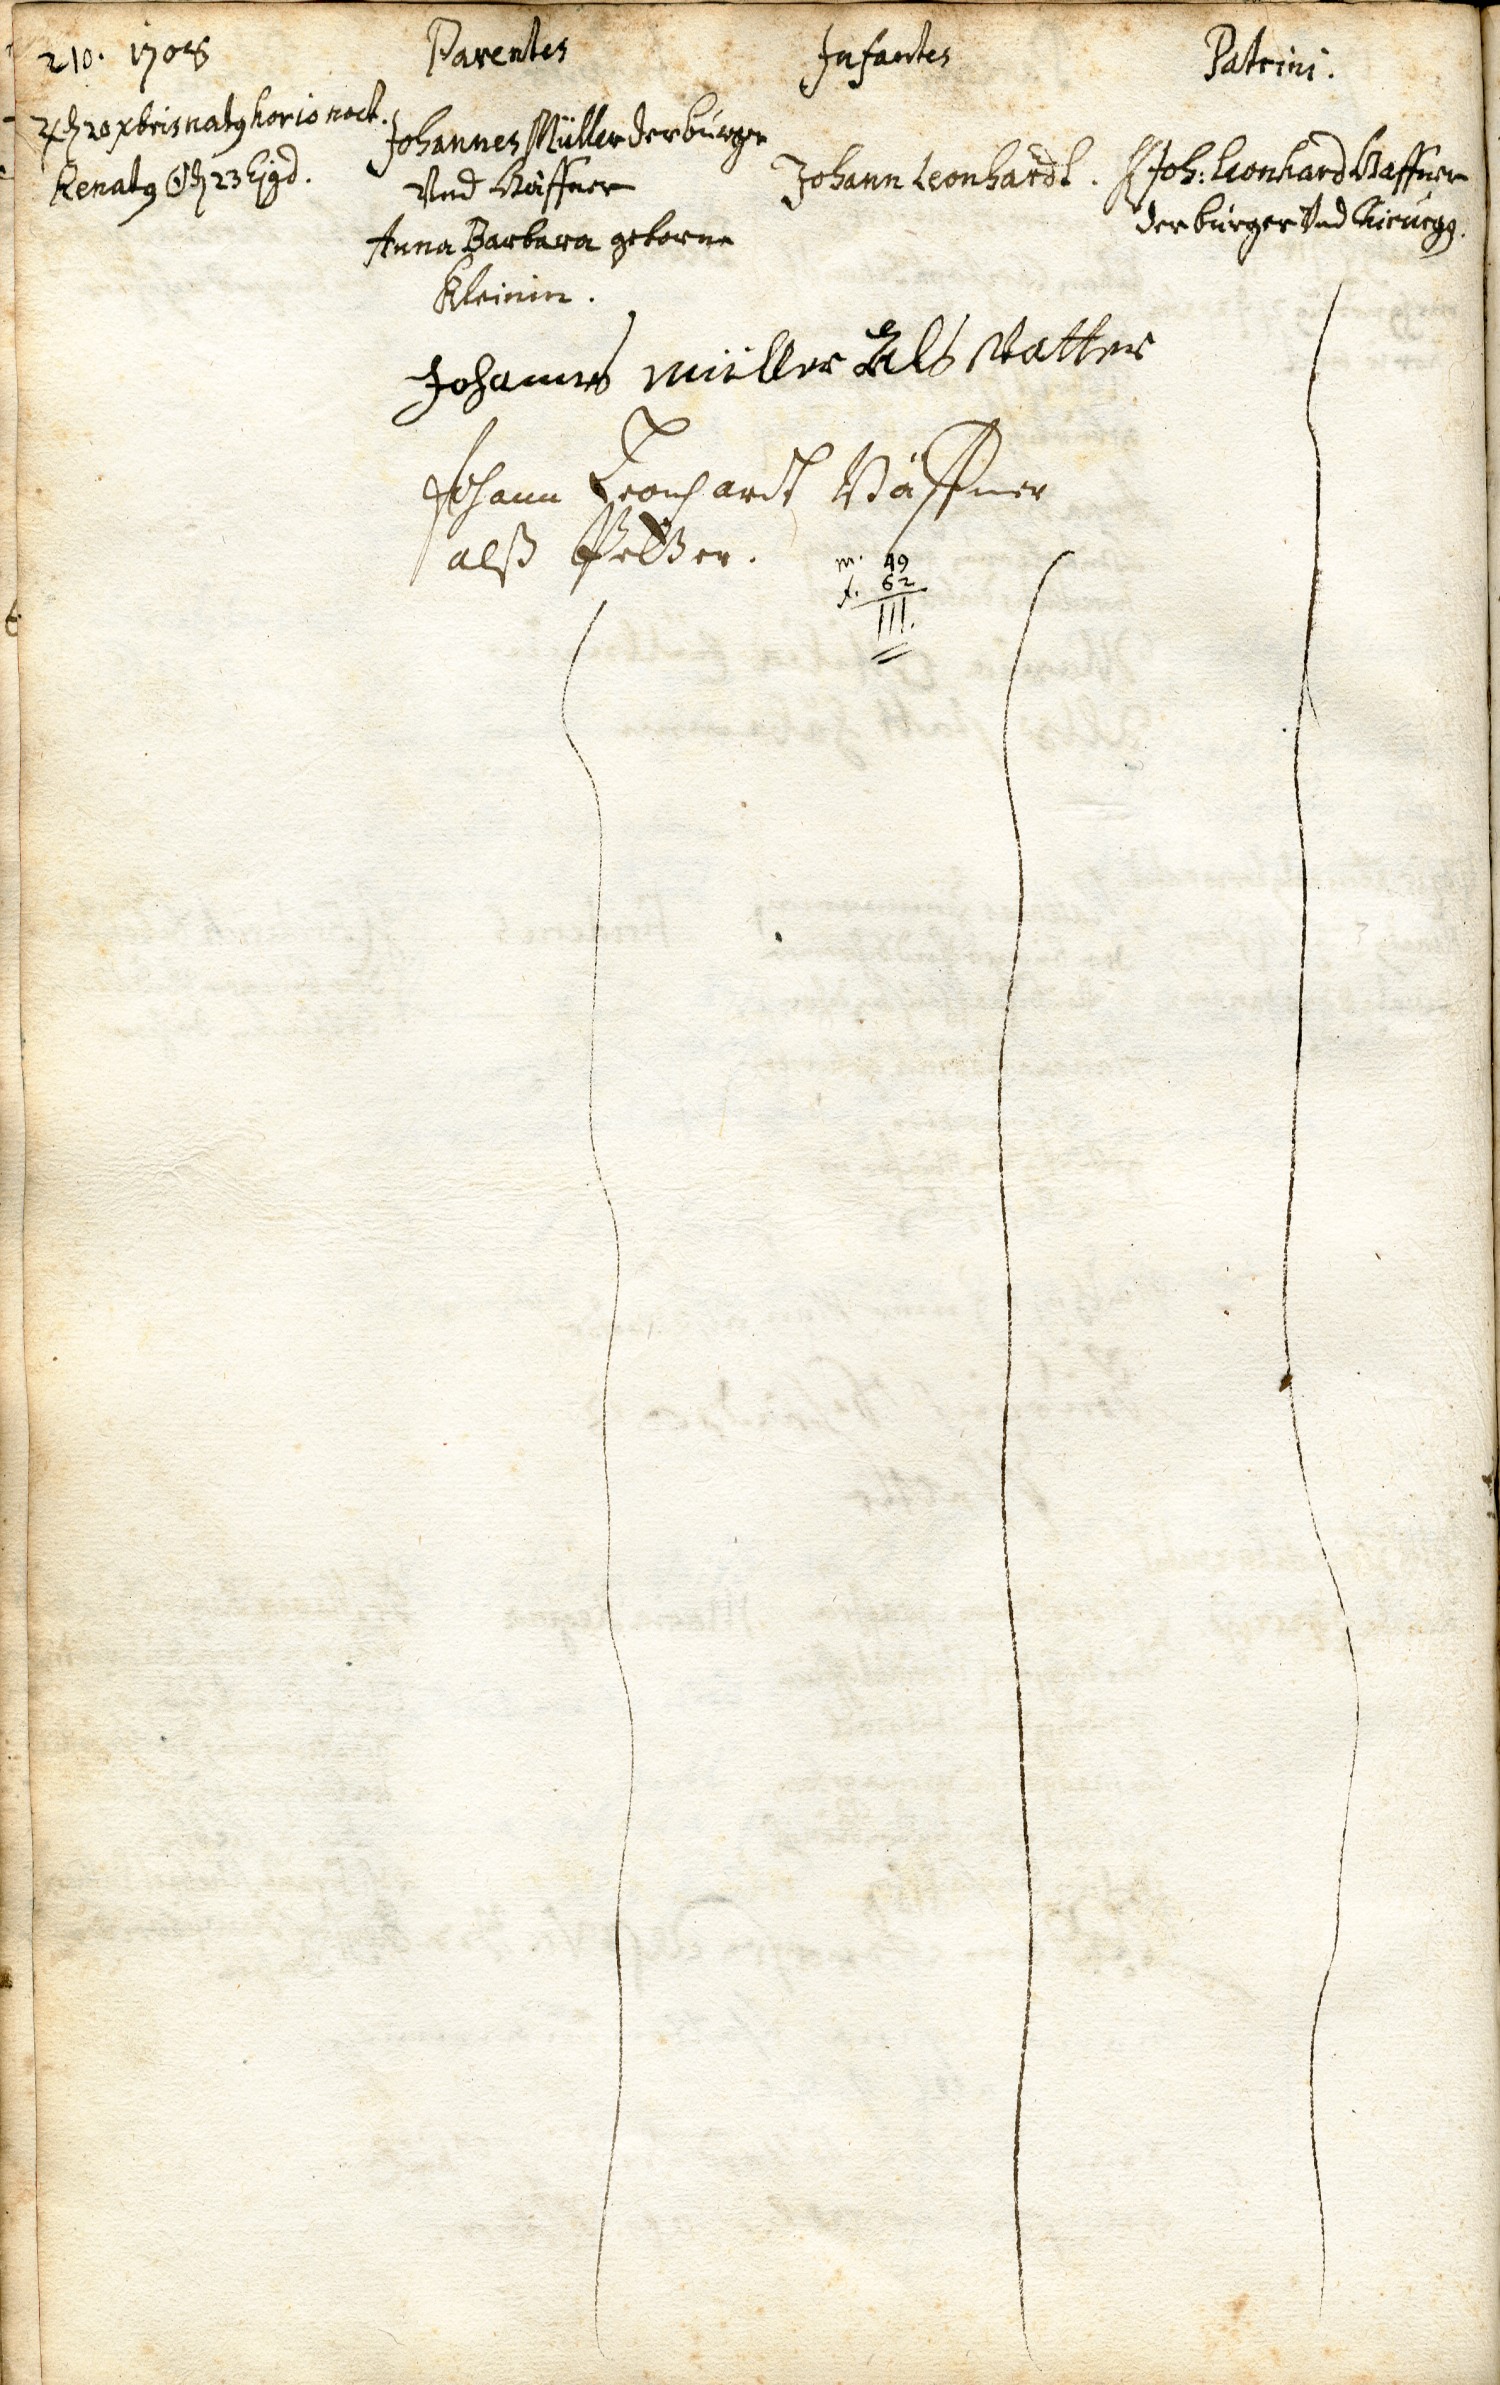 210. 1708
Parentes
Infantes
Patrini.
♃ d 20 xbris natg hor 10 noct.
Renatg ☉ d 23 Ejgd.
Johannes Müller der burger
Und Häffner
Anna Barbara geborne
Kleinin.
Johann Leonhardt.
H Joh: Leonhard Vaffner
der burger Und Chirurgg.
Johannes Müller Als Vatter
Johann Leonhardt Väffner
alß Petter.
m. 49
f. 62
111.